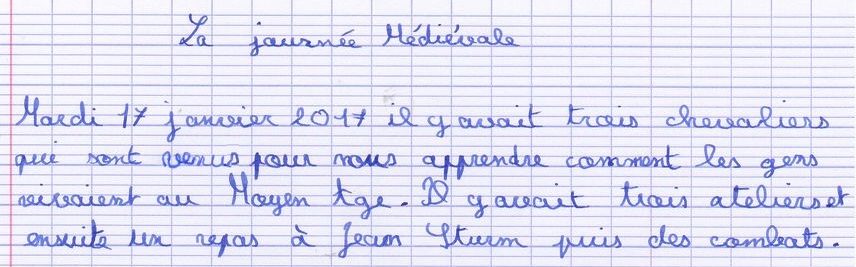 La journée Médiévale
Mardi 17 janvier 2017 il y avait trois chevaliers
qui sont venus pour nous apprendre comment les gens
vivaient au Moyen Age. Il y avait trois ateliers et
ensuite un repas à Jean Sturm puis des combats.